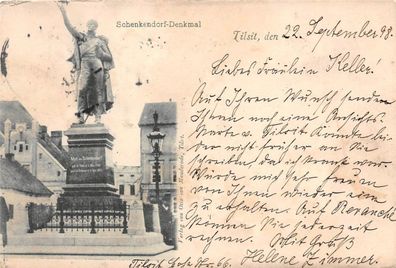 Schenkendorf-Denkmal
Tilsit, den 22. September 98.
Liebes Fräulein Keller!
Auf Ihren Wunsch sende
Ihnen noch eine Ansichts
karte v. Tilsit. Konnte bis-
her nicht früher an Sie
schreiben, da ich krank war.
Würde mich sehr freuen
von Ihnen wieder eine
zu erhalten. Auf Revanche
können Sie jederzeit
rechnen. Mit Gruß
Helene Zimmer.
Tilsit
66.